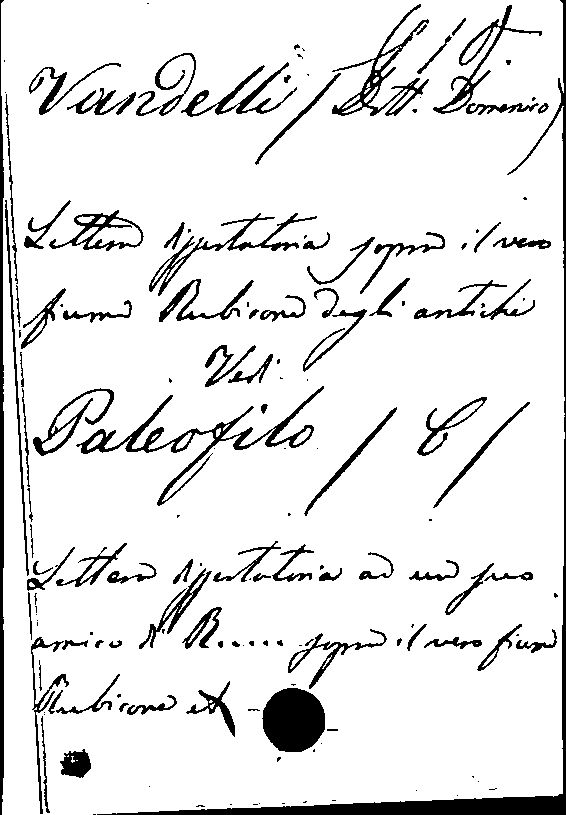 Vandelli / (Dott. Domenico)
Lettera dissertatoria sopra il vero
fiume Rubicone degli antichi
Vedi
Paleofilo / C /
Lettera dissertatoria ad un suo
amico di R..... sopra il vero fiume
Rubicone